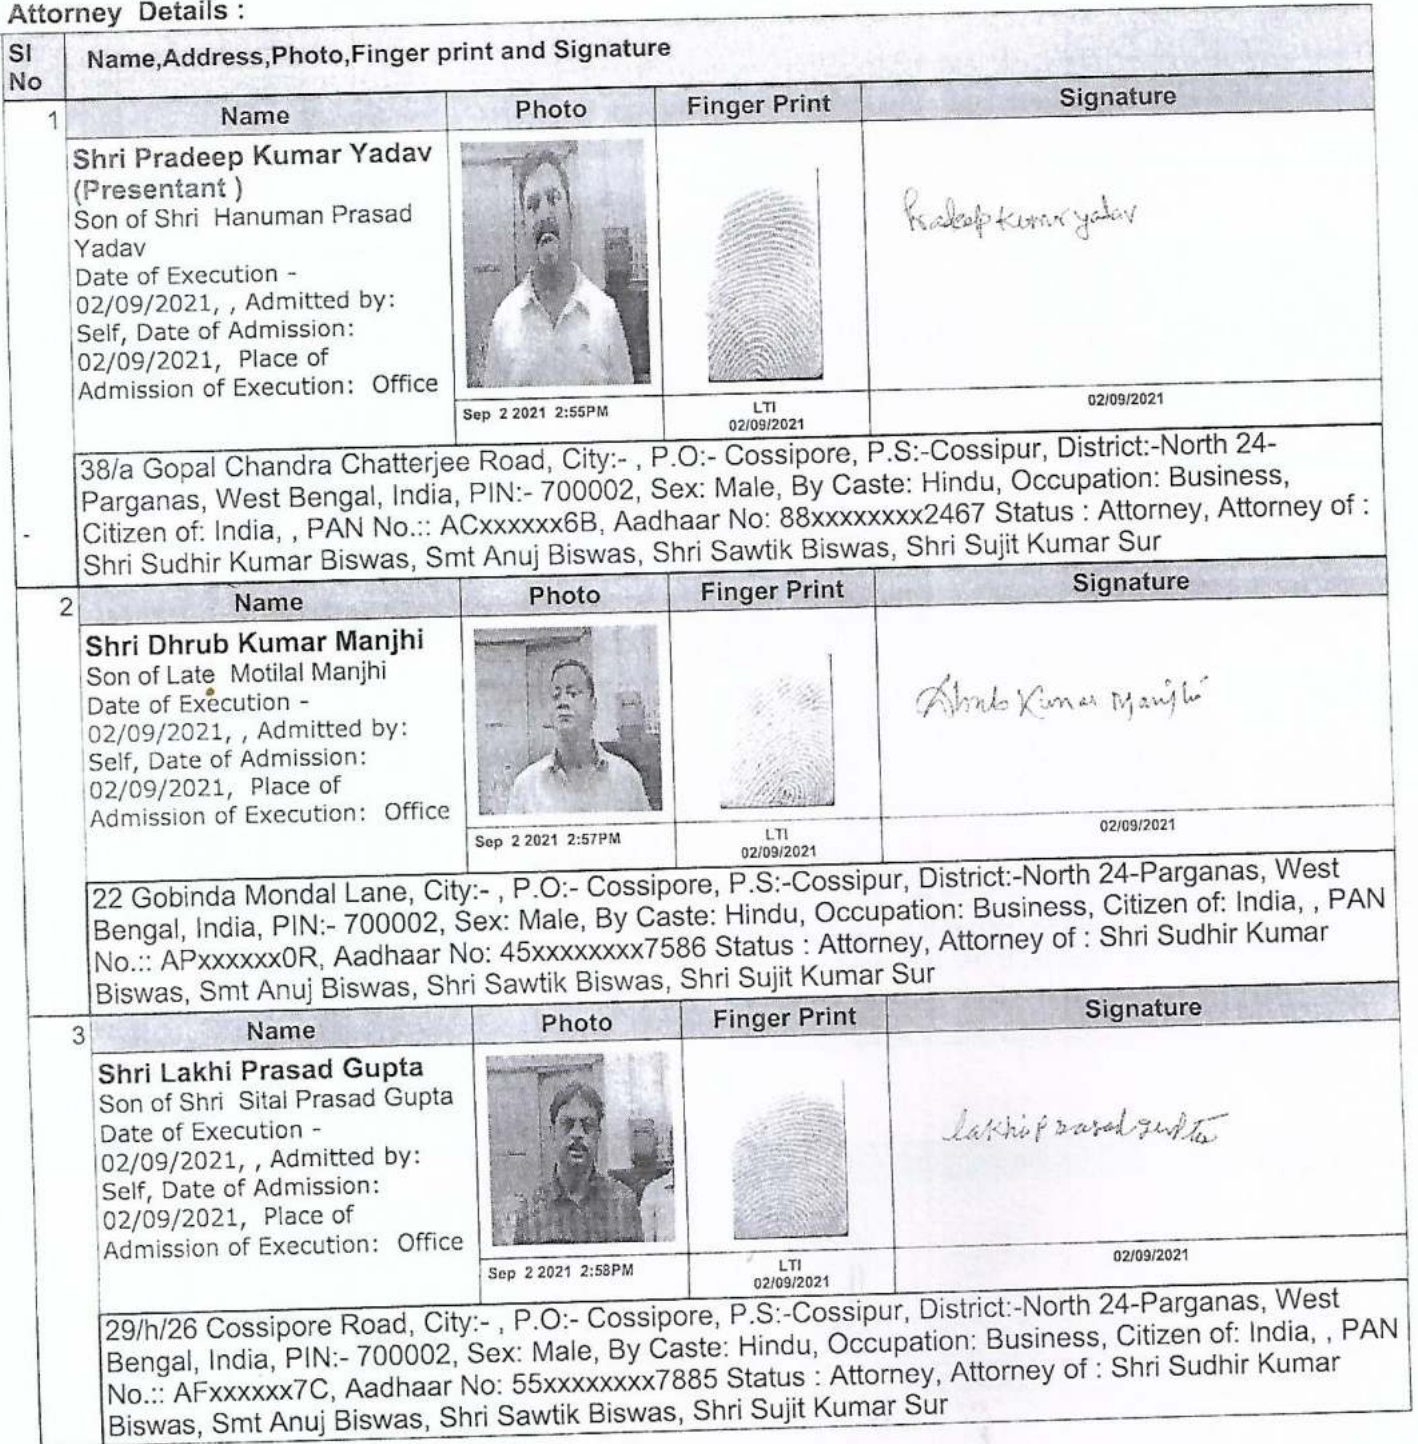 Attorney Details :
Sl No Name,Address,Photo,Finger print and Signature
1 Name Photo Finger Print Signature
Shri Pradeep Kumar Yadav
(Presentant )
Son of Shri Hanuman Prasad
Yadav
Date of Execution -
02/09/2021, , Admitted by:
Self, Date of Admission:
02/09/2021, Place of
Admission of Execution: Office
Pradeep Kumar yadav
Sep 2 2021 2:55PM
LTI
02/09/2021
02/09/2021
38/a Gopal Chandra Chatterjee Road, City:- , P.O:- Cossipore, P.S:-Cossipur, District:-North 24-
Parganas, West Bengal, India, PIN:- 700002, Sex: Male, By Caste: Hindu, Occupation: Business,
Citizen of: India, , PAN No.:: ACxxxxxx6B, Aadhaar No: 88xxxxxxxx2467 Status : Attorney, Attorney of :
Shri Sudhir Kumar Biswas, Smt Anuj Biswas, Shri Sawtik Biswas, Shri Sujit Kumar Sur
2 Name Photo Finger Print Signature
Shri Dhrub Kumar Manjhi
Son of Late Motilal Manjhi
Date of Execution -
02/09/2021, , Admitted by:
Self, Date of Admission:
02/09/2021, Place of
Admission of Execution: Office
Dhrub Kumar Manjhi
Sep 2 2021 2:57PM
LTI
02/09/2021
02/09/2021
22 Gobinda Mondal Lane, City:- , P.O:- Cossipore, P.S:-Cossipur, District:-North 24-Parganas, West
Bengal, India, PIN:- 700002, Sex: Male, By Caste: Hindu, Occupation: Business, Citizen of: India, , PAN
No.:: APxxxxxx0R, Aadhaar No: 45xxxxxxxx7586 Status : Attorney, Attorney of : Shri Sudhir Kumar
Biswas, Smt Anuj Biswas, Shri Sawtik Biswas, Shri Sujit Kumar Sur
3 Name Photo Finger Print Signature
Shri Lakhi Prasad Gupta
Son of Shri Sital Prasad Gupta
Date of Execution -
02/09/2021, , Admitted by:
Self, Date of Admission:
02/09/2021, Place of
Admission of Execution: Office
lakhi Prasad gupta
Sep 2 2021 2:58PM
LTI
02/09/2021
02/09/2021
29/h/26 Cossipore Road, City:- , P.O:- Cossipore, P.S:-Cossipur, District:-North 24-Parganas, West
Bengal, India, PIN:- 700002, Sex: Male, By Caste: Hindu, Occupation: Business, Citizen of: India, , PAN
No.:: AFxxxxxx7C, Aadhaar No: 55xxxxxxxx7885 Status : Attorney, Attorney of : Shri Sudhir Kumar
Biswas, Smt Anuj Biswas, Shri Sawtik Biswas, Shri Sujit Kumar Sur